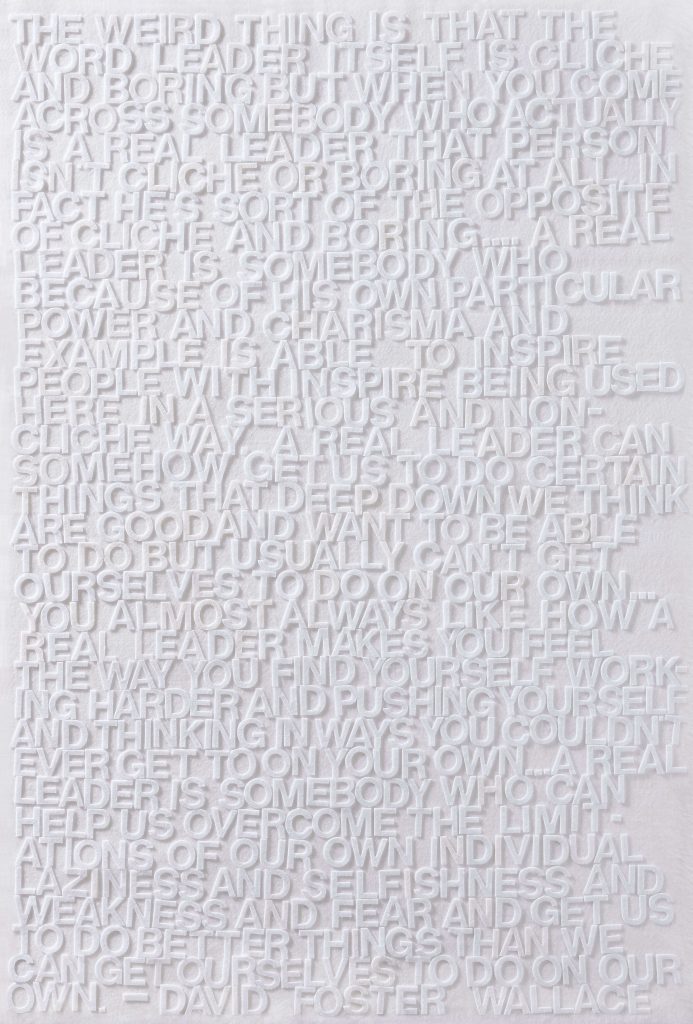 THE WEIRD THING IS THAT THE
WORD LEADER ITSELF IS CLICHE
AND BORING BUT WHEN YOU COME
ACROSS SOMEBODY WHO ACTUALLY
IS A REAL LEADER THAT PERSON
ISN'T CLICHE OR BORING AT ALL, IN
FACT HE'S SORT OF THE OPPOSITE
OF CLICHE AND BORING.... A REAL
LEADER IS SOMEBODY WHO
BECAUSE OF HIS OWN PARTICULAR
POWER AND CHARISMA AND
EXAMPLE IS ABLE TO INSPIRE
PEOPLE WITH INSPIRE BEING USED
HERE IN A SERIOUS AND NON-
CLICHE WAY. A REAL LEADER CAN
SOMEHOW GET US TO DO CERTAIN
THINGS THAT DEEP DOWN WE THINK
ARE GOOD AND WANT TO BE ABLE
TO DO BUT USUALLY CAN'T GET
OURSELVES TO DO ON OUR OWN....
YOU ALMOST ALWAYS LIKE HOW A
REAL LEADER MAKES YOU FEEL
THE WAY YOU FIND YOURSELF WORK-
ING HARDER AND PUSHING YOURSELF
AND THINKING IN WAYS YOU COULDN'T
EVER GET TO ON YOUR OWN....A REAL
LEADER IS SOMEBODY WHO CAN
HELP US OVERCOME THE LIMIT-
ATIONS OF OUR OWN INDIVIDUAL
LAZINESS AND SELFISHNESS AND
WEAKNESS AND FEAR AND GET US
TO DO BETTER THINGS THAN WE
CAN GET OURSELVES TO DO ON OUR
OWN. – DAVID FOSTER WALLACE